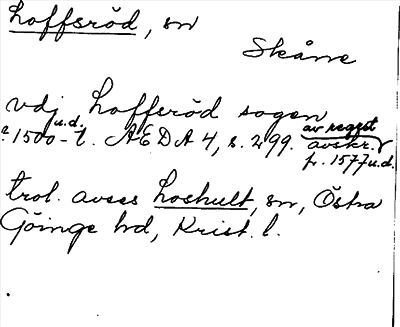 Loffsröd, sn
Skåne
vdj Loffsröd sogen
u.d. av regest
? 1500-t. AEDA 4, s. 299. avskr.
fr. 1577 u.d.
trol. avses Loshult, sn, Östra
Göinge hd, Krist. l.